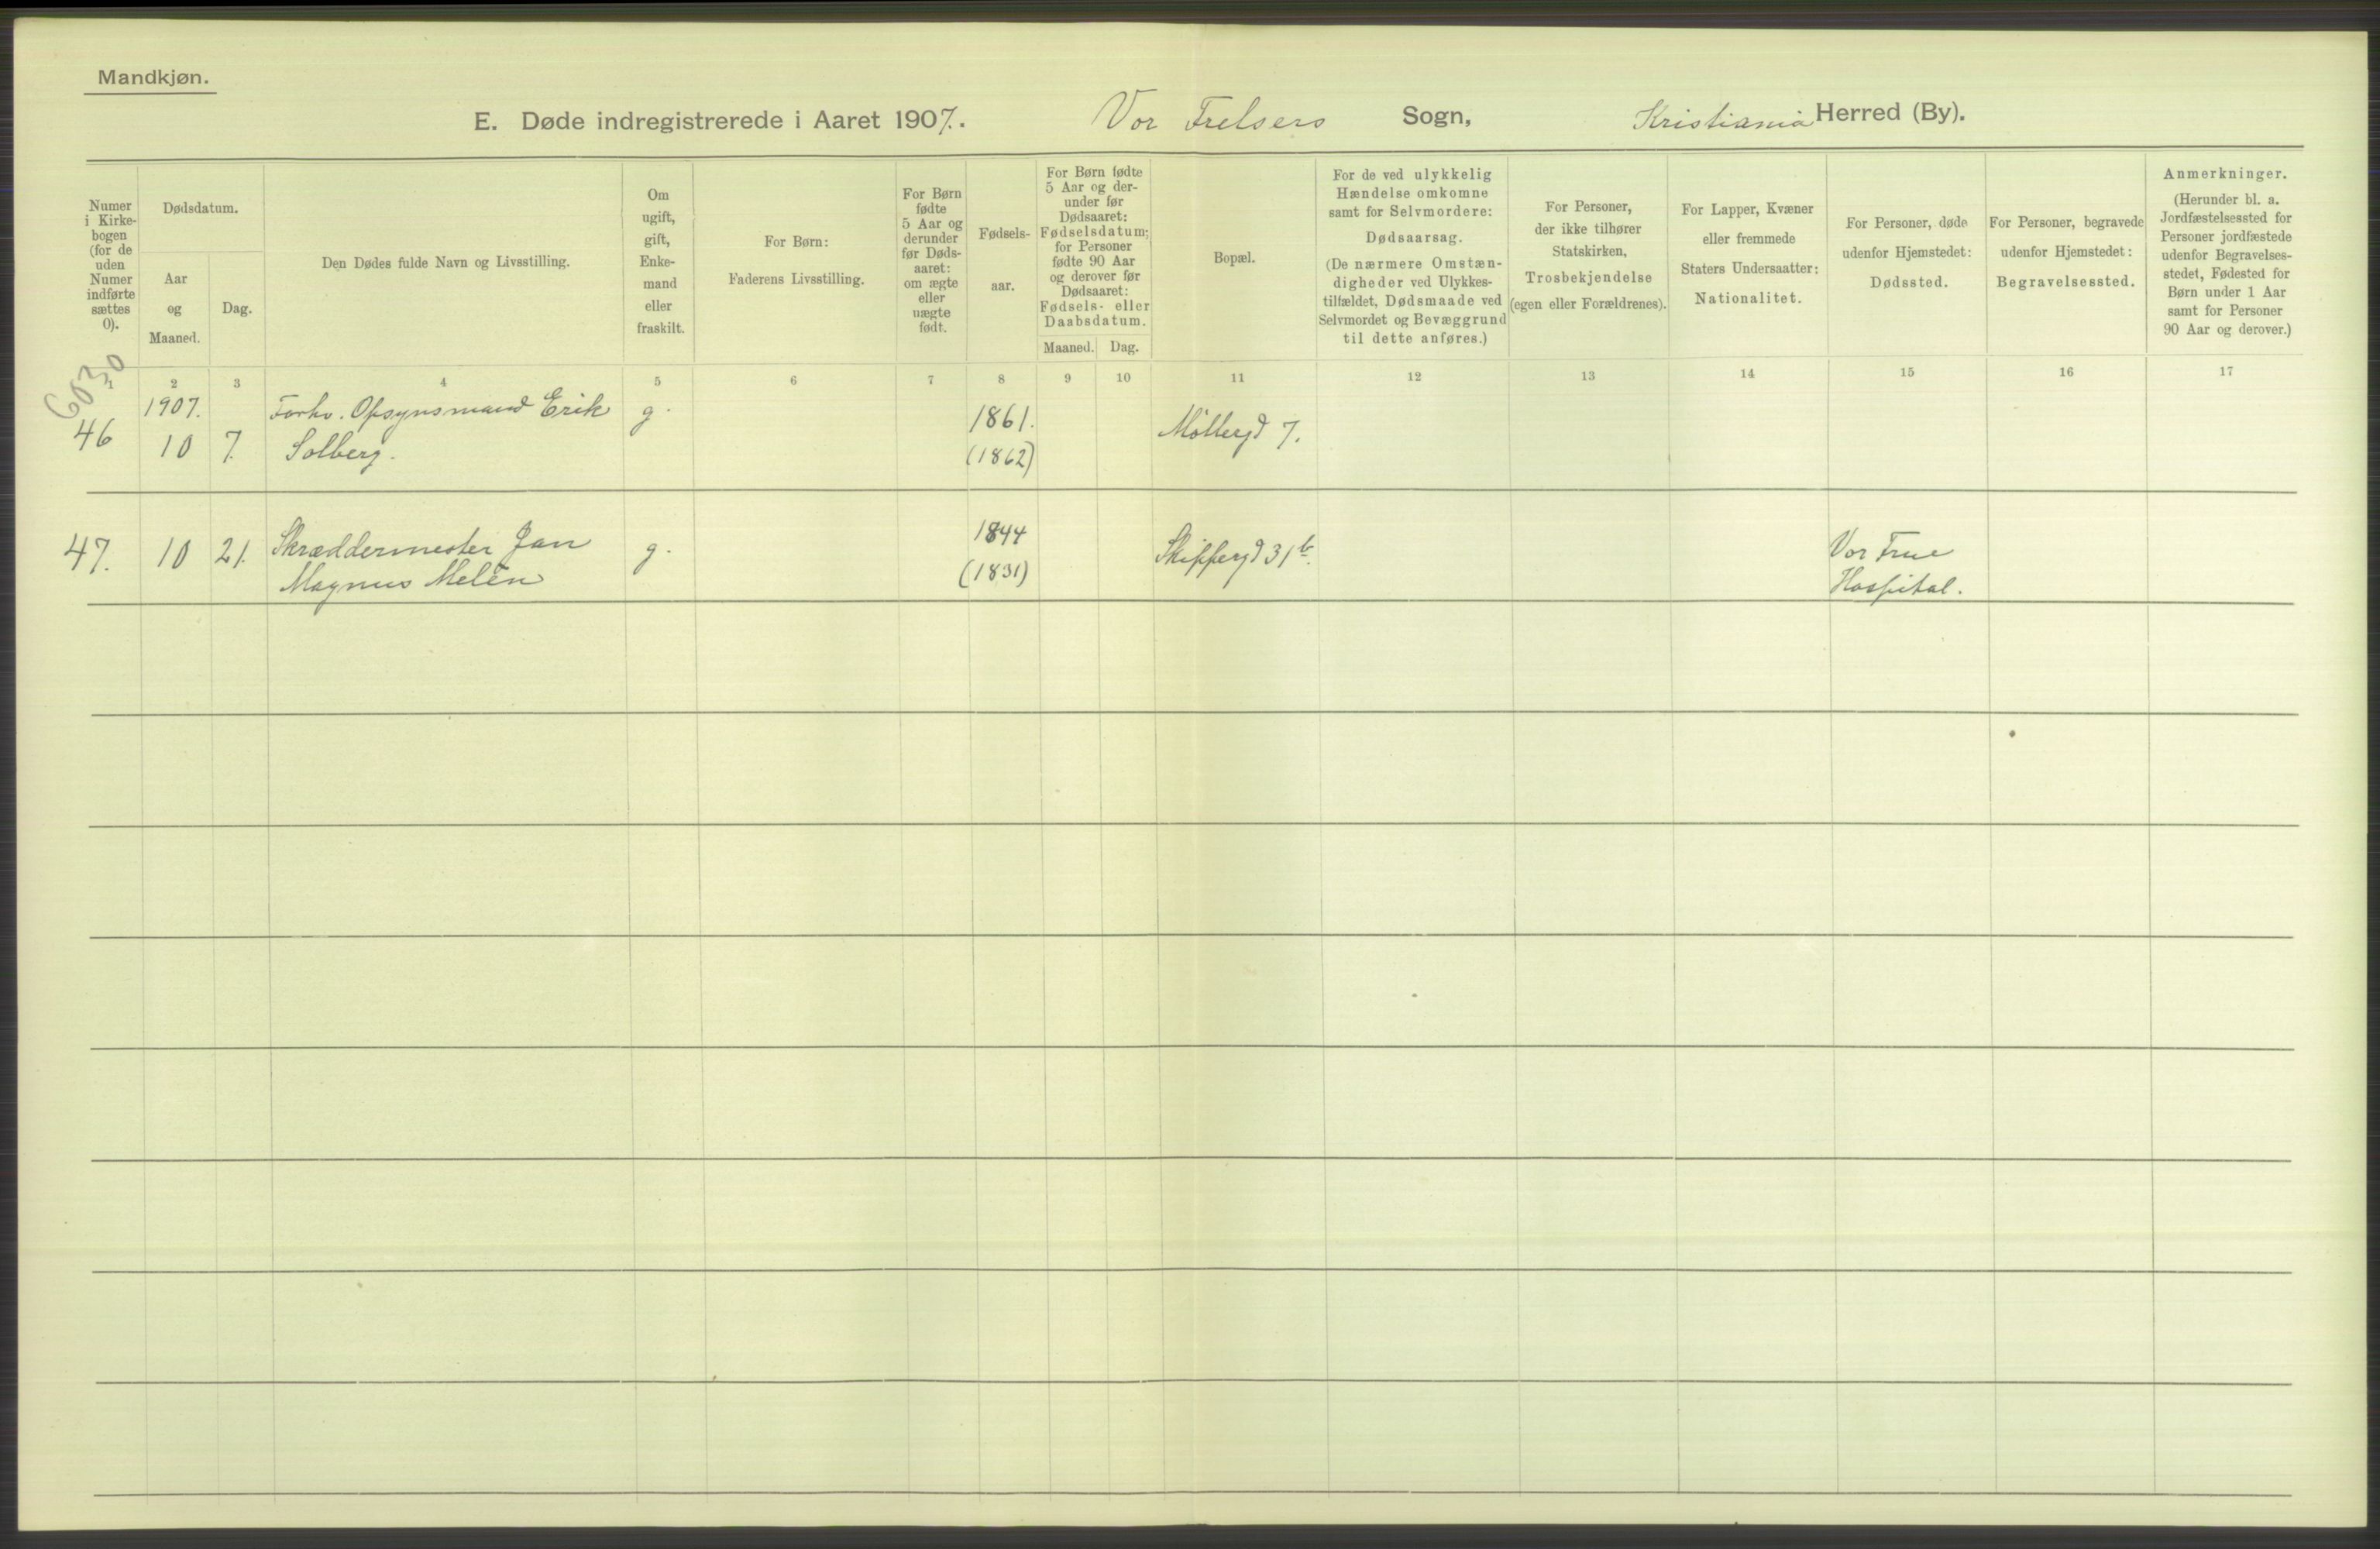 Mandkjøn.
E. Døde indregistrerede i Aaret 1907. Vor Frelsers Sogn, Kristiania Herred (By).
Numer
i Kirke-
bogen
(for de
uden
Numer
indførte
sættes
0).
Dødsdatum.
Aar
og
Maaned.
Dag.
Den Dødes fulde Navn og Livsstilling.
Om
ugift,
gift,
Enke-
mand
eller
fraskilt.
For Børn:
Faderens Livsstilling.
For Børn
fødte
5 Aar og
derunder
før Døds-
aaret:
om ægte
eller
uægte
født.
Fødsels-
aar.
For Børn fødte
5 Aar og der-
under før
Dødsaaret:
Fødselsdatum;
for Personer
fødte 90 Aar
og derover før
Dødsaaret:
Fødsels- eller
Daabsdatum.
Maaned. Dag.
Bopæl.
For de ved ulykkelig
Hændelse omkomne
samt for Selvmordere:
Dødsaarsag.
(De nærmere Omstæn-
digheder ved Ulykkes-
tilfældet, Dødsmaade ved
Selvmordet og Bevæggrund
til dette anføres.)
For Personer,
der ikke tilhører
Statskirken,
Trosbekjendelse
(egen eller Forældrenes).
For Lapper, Kvæner
eller fremmede
Staters Undersaatter:
Nationalitet.
For Personer, døde
udenfor Hjemstedet:
Dødssted.
For Personer, begravede
udenfor Hjemstedet:
Begravelsessted.
Anmerkninger.
(Herunder bl. a.
Jordfæstelsessted for
Personer jordfæstede
udenfor Begravelses-
stedet, Fødested for
Børn under 1 Aar
samt for Personer
90 Aar og derover.)
1 2 3 4 5 6 7 8 9 10 11 12 13 14 15 16 17
6030
46
1907.
10 7.
Forhv. Opsynsmand Erik
Solberg.
g.
1861.
(1862)
Møllergd 7.
47. 10 21.
Skræddermester Jan
Magnus Melèn
g.
1844
(1831)
Skippergd 31 b.
Vor Frue
Hospital.